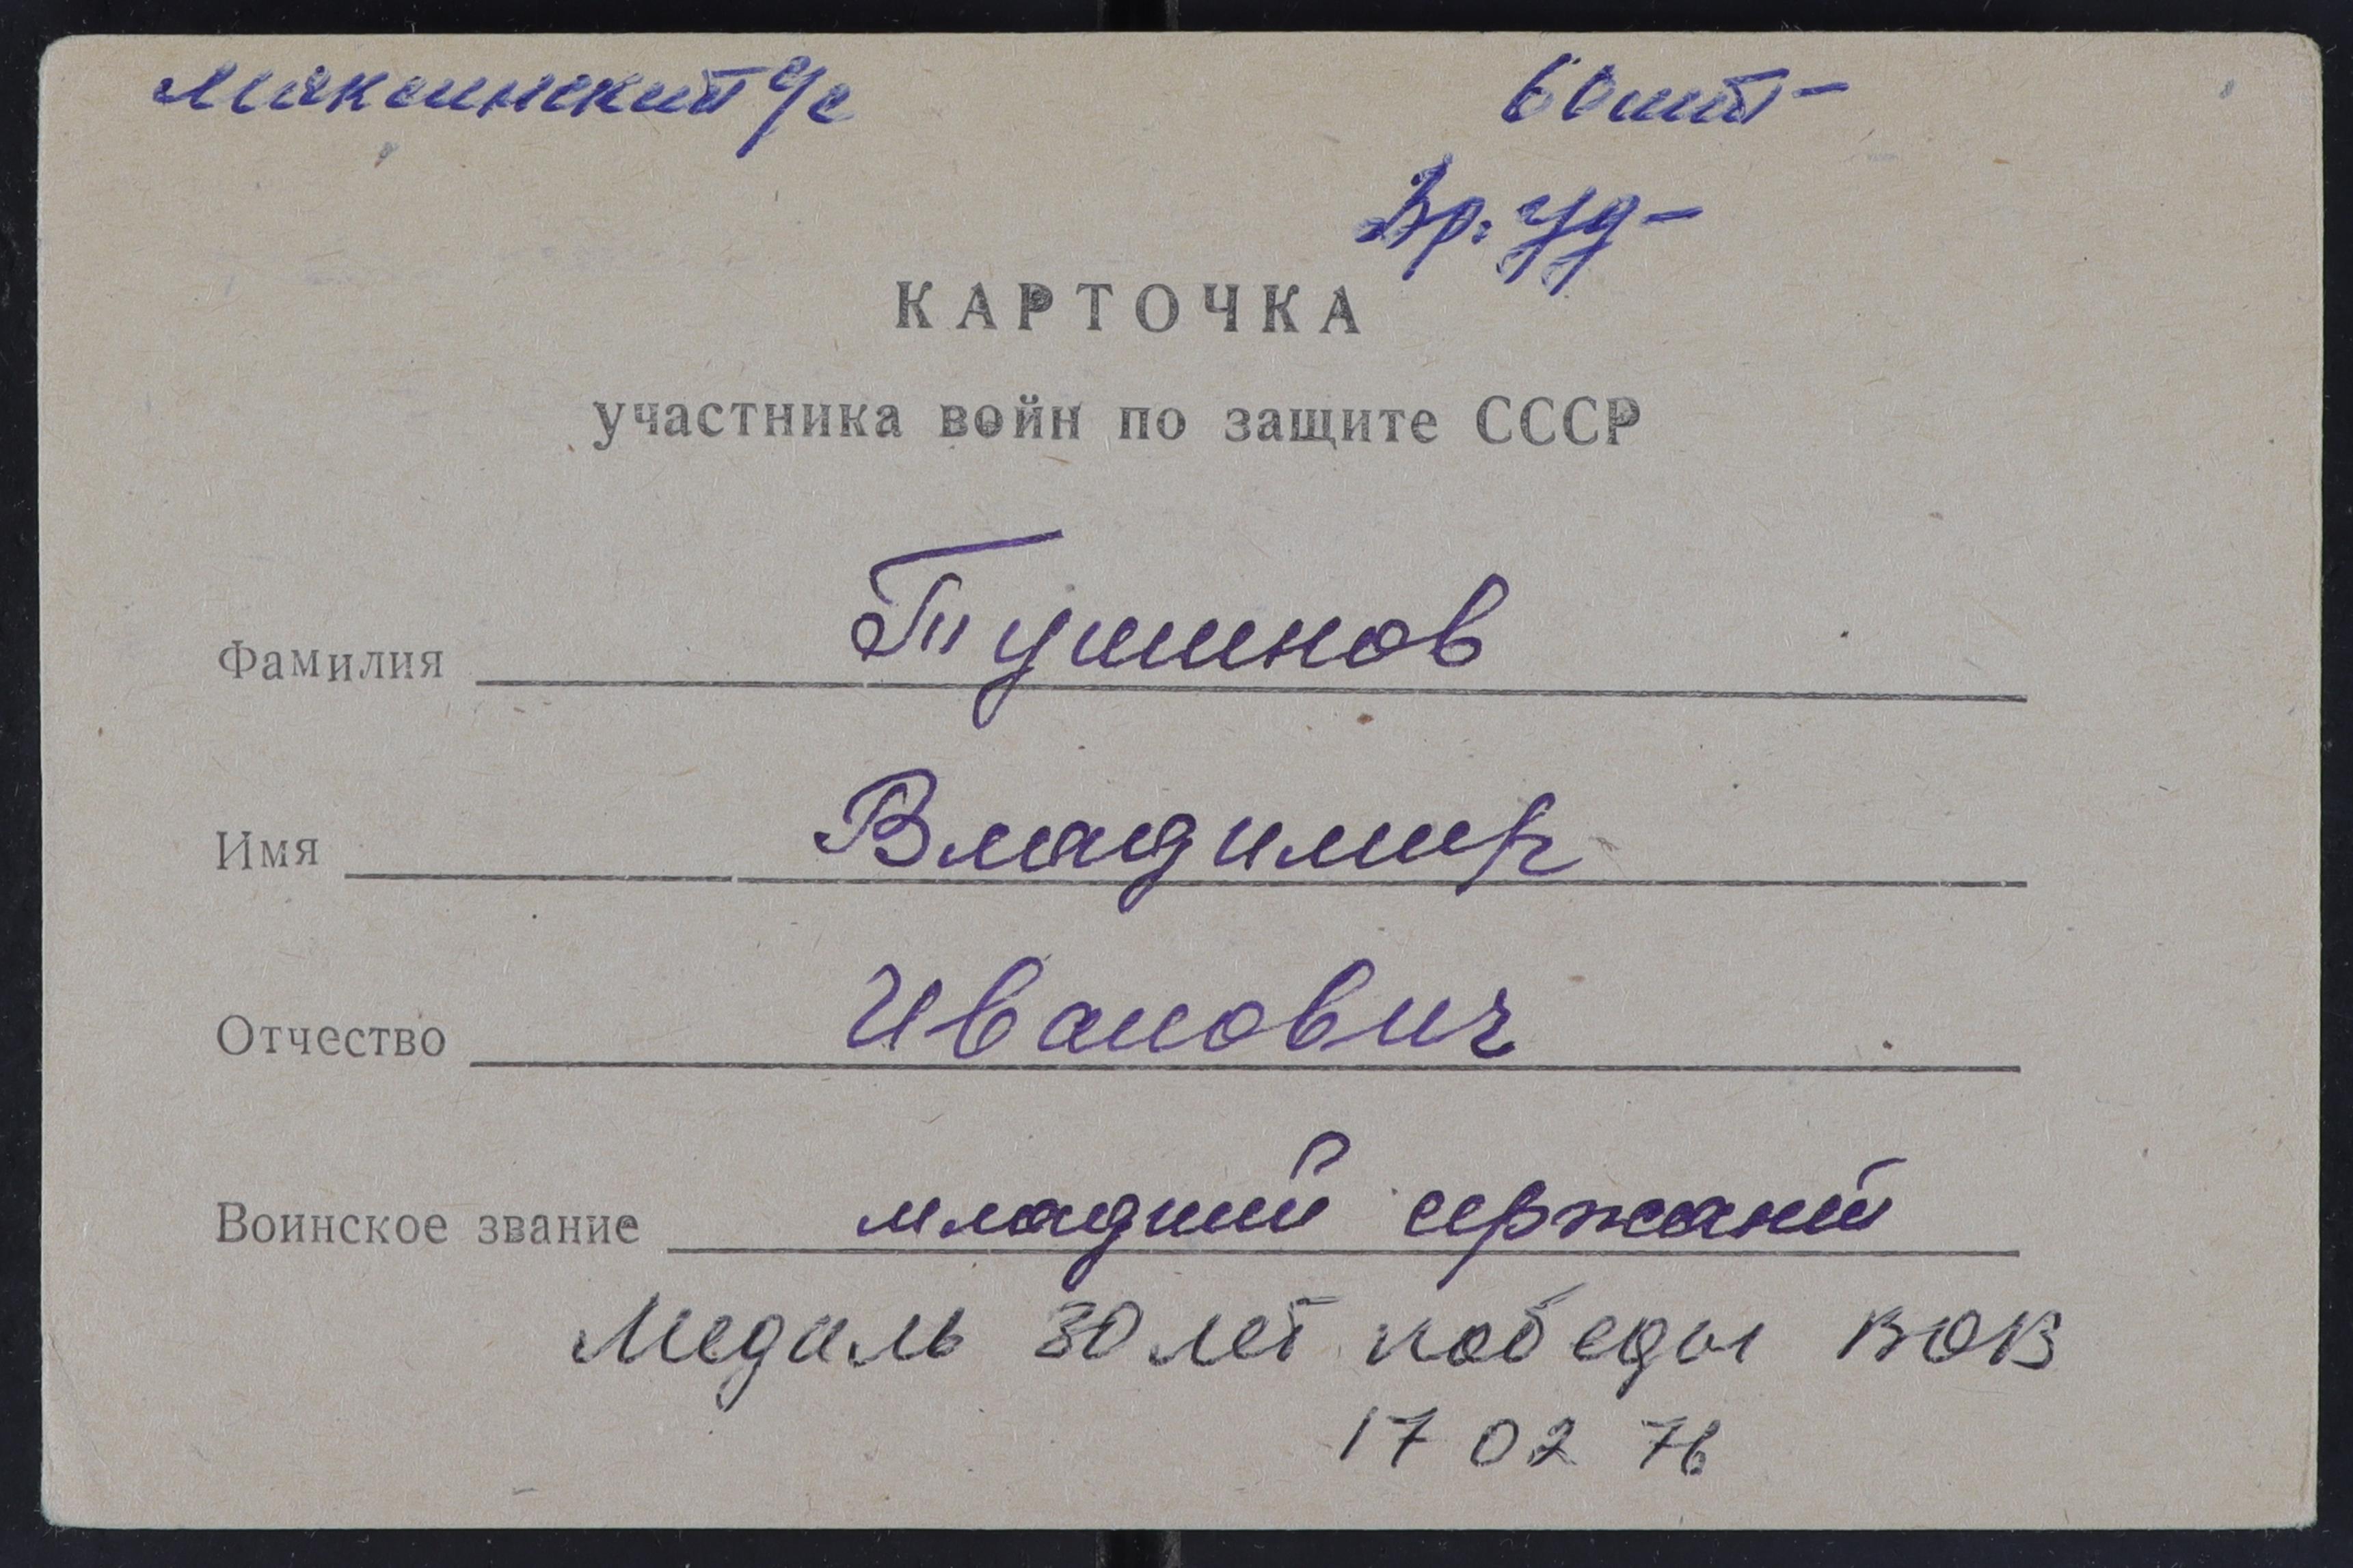 Максинский с/с 60шт-
Вр. уд-
КАРТОЧКА
участника войн по защите СССР
Фамилия Тушинов
Имя Владимир
Отчество Иванович
Воинское звание младший сержант
Медаль 30 лет победы ВОВ
17 02 76